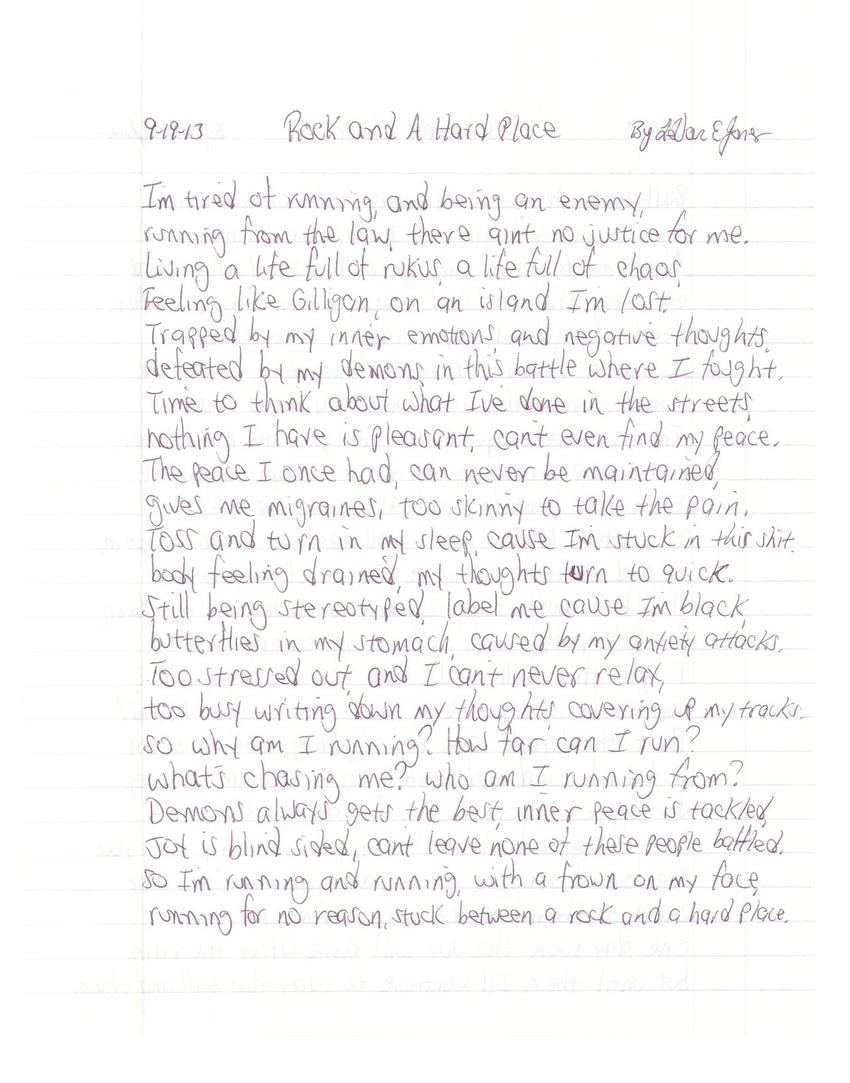 9-19-13 Rock and A Hard Place By LaVar E Jones
Im tired of running, and being an enemy,
running from the law, there aint no justice for me.
Living a life full of rukus, a life full of chaos,
Feeling like Gilligan, on an island Im lost.
Trapped by my inner emotions, and negative thoughts,
defeated by my demons, in this battle where I fought.
Time to think about what Ive done in the streets,
nothing I have is pleasant, cant even find my peace.
The peace I once had, can never be maintained,
gives me migraines, too skinny to take the pain.
Toss and turn in my sleep, cause Im stuck in this shit.
body feeling drained, my thoughts turn to quick.
Still being stereotyped, label me cause Im black,
butterflies in my stomach, caused by my anxiety attacks.
Too stressed out, and I cant never relax,
too busy writing down my thoughts, covering up my tracks.
So why am I running? How far can I run?
whats chasing me? who am I running from?
Demons always gets the best, inner peace is tackled,
Joy is blind sided, cant leave none of these people baffled.
So Im running and running, with a frown on my face,
running for no reason, stuck between a rock and a hard place.